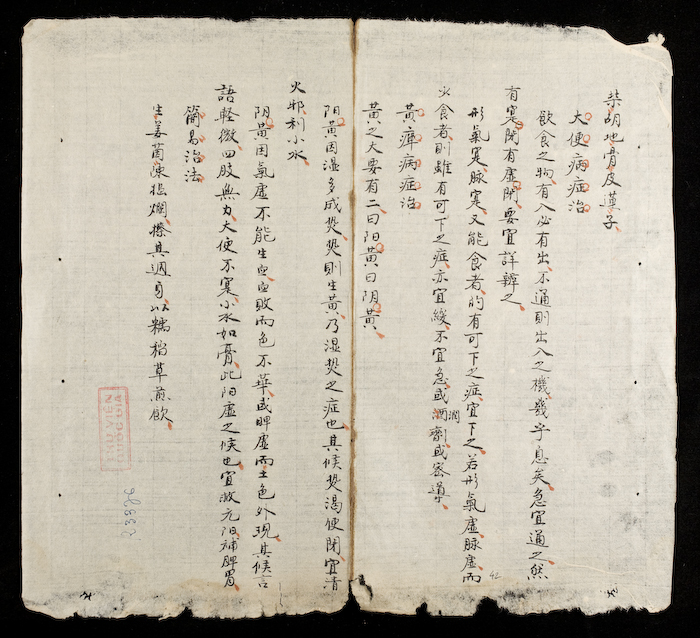 柴胡地骨皮蓮子
大便病症治
飲食之物有入必有出不通則出入之機幾乎息矣急宜通之然
有寔閉有虛閉要宜詳辨之
形氣寔脉寔又能食者的有可下之症宜下之若形氣虛脉虛而
少食者則雖有可下之症亦宜緩不宜急或潤劑或蜜導
黃疸病症治
黃之大要有二曰阳黃曰阴黃
阳黃因湿多成热热則生黃乃湿热之症也其候热渴便閉宜清
火邪利小水
阴黃因氣虛不能生血血敗而色不華或脾虛而土色外現其候言
語輕微四肢無力大便不寔小水如膏此阳虛之候也宜救元阳補脾胃
簡易治法
生姜茵陳搗爛擦其週身以糯稻草煎飲
THƯ VIỆN
QUỐC GIA
42